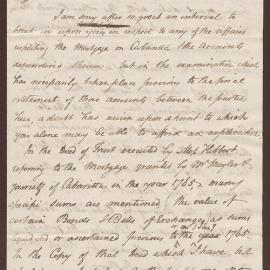 I am sorry after so great an interval to
break in upon you in respect to any of the affairs
respecting the Mortgage on Cabarita & the Accounts
depending thereon - but in the examination which
has necessarily taken place previous to the final
settlement of those accounts between the parties
a doubt has arisen upon a point to which
you alone may be able to afford an explanation.
In the Deed of Trust executed by Mrs Hibbert
referring to the Mortgage granted by Mr
yourself of Cabarita in the year 1765. many
specific sums are mentioned, the value of
certain Bonds & Bills of Exchange, as sums
or ascertained previous to the year 1765
In the Copy of that Deed which I have but